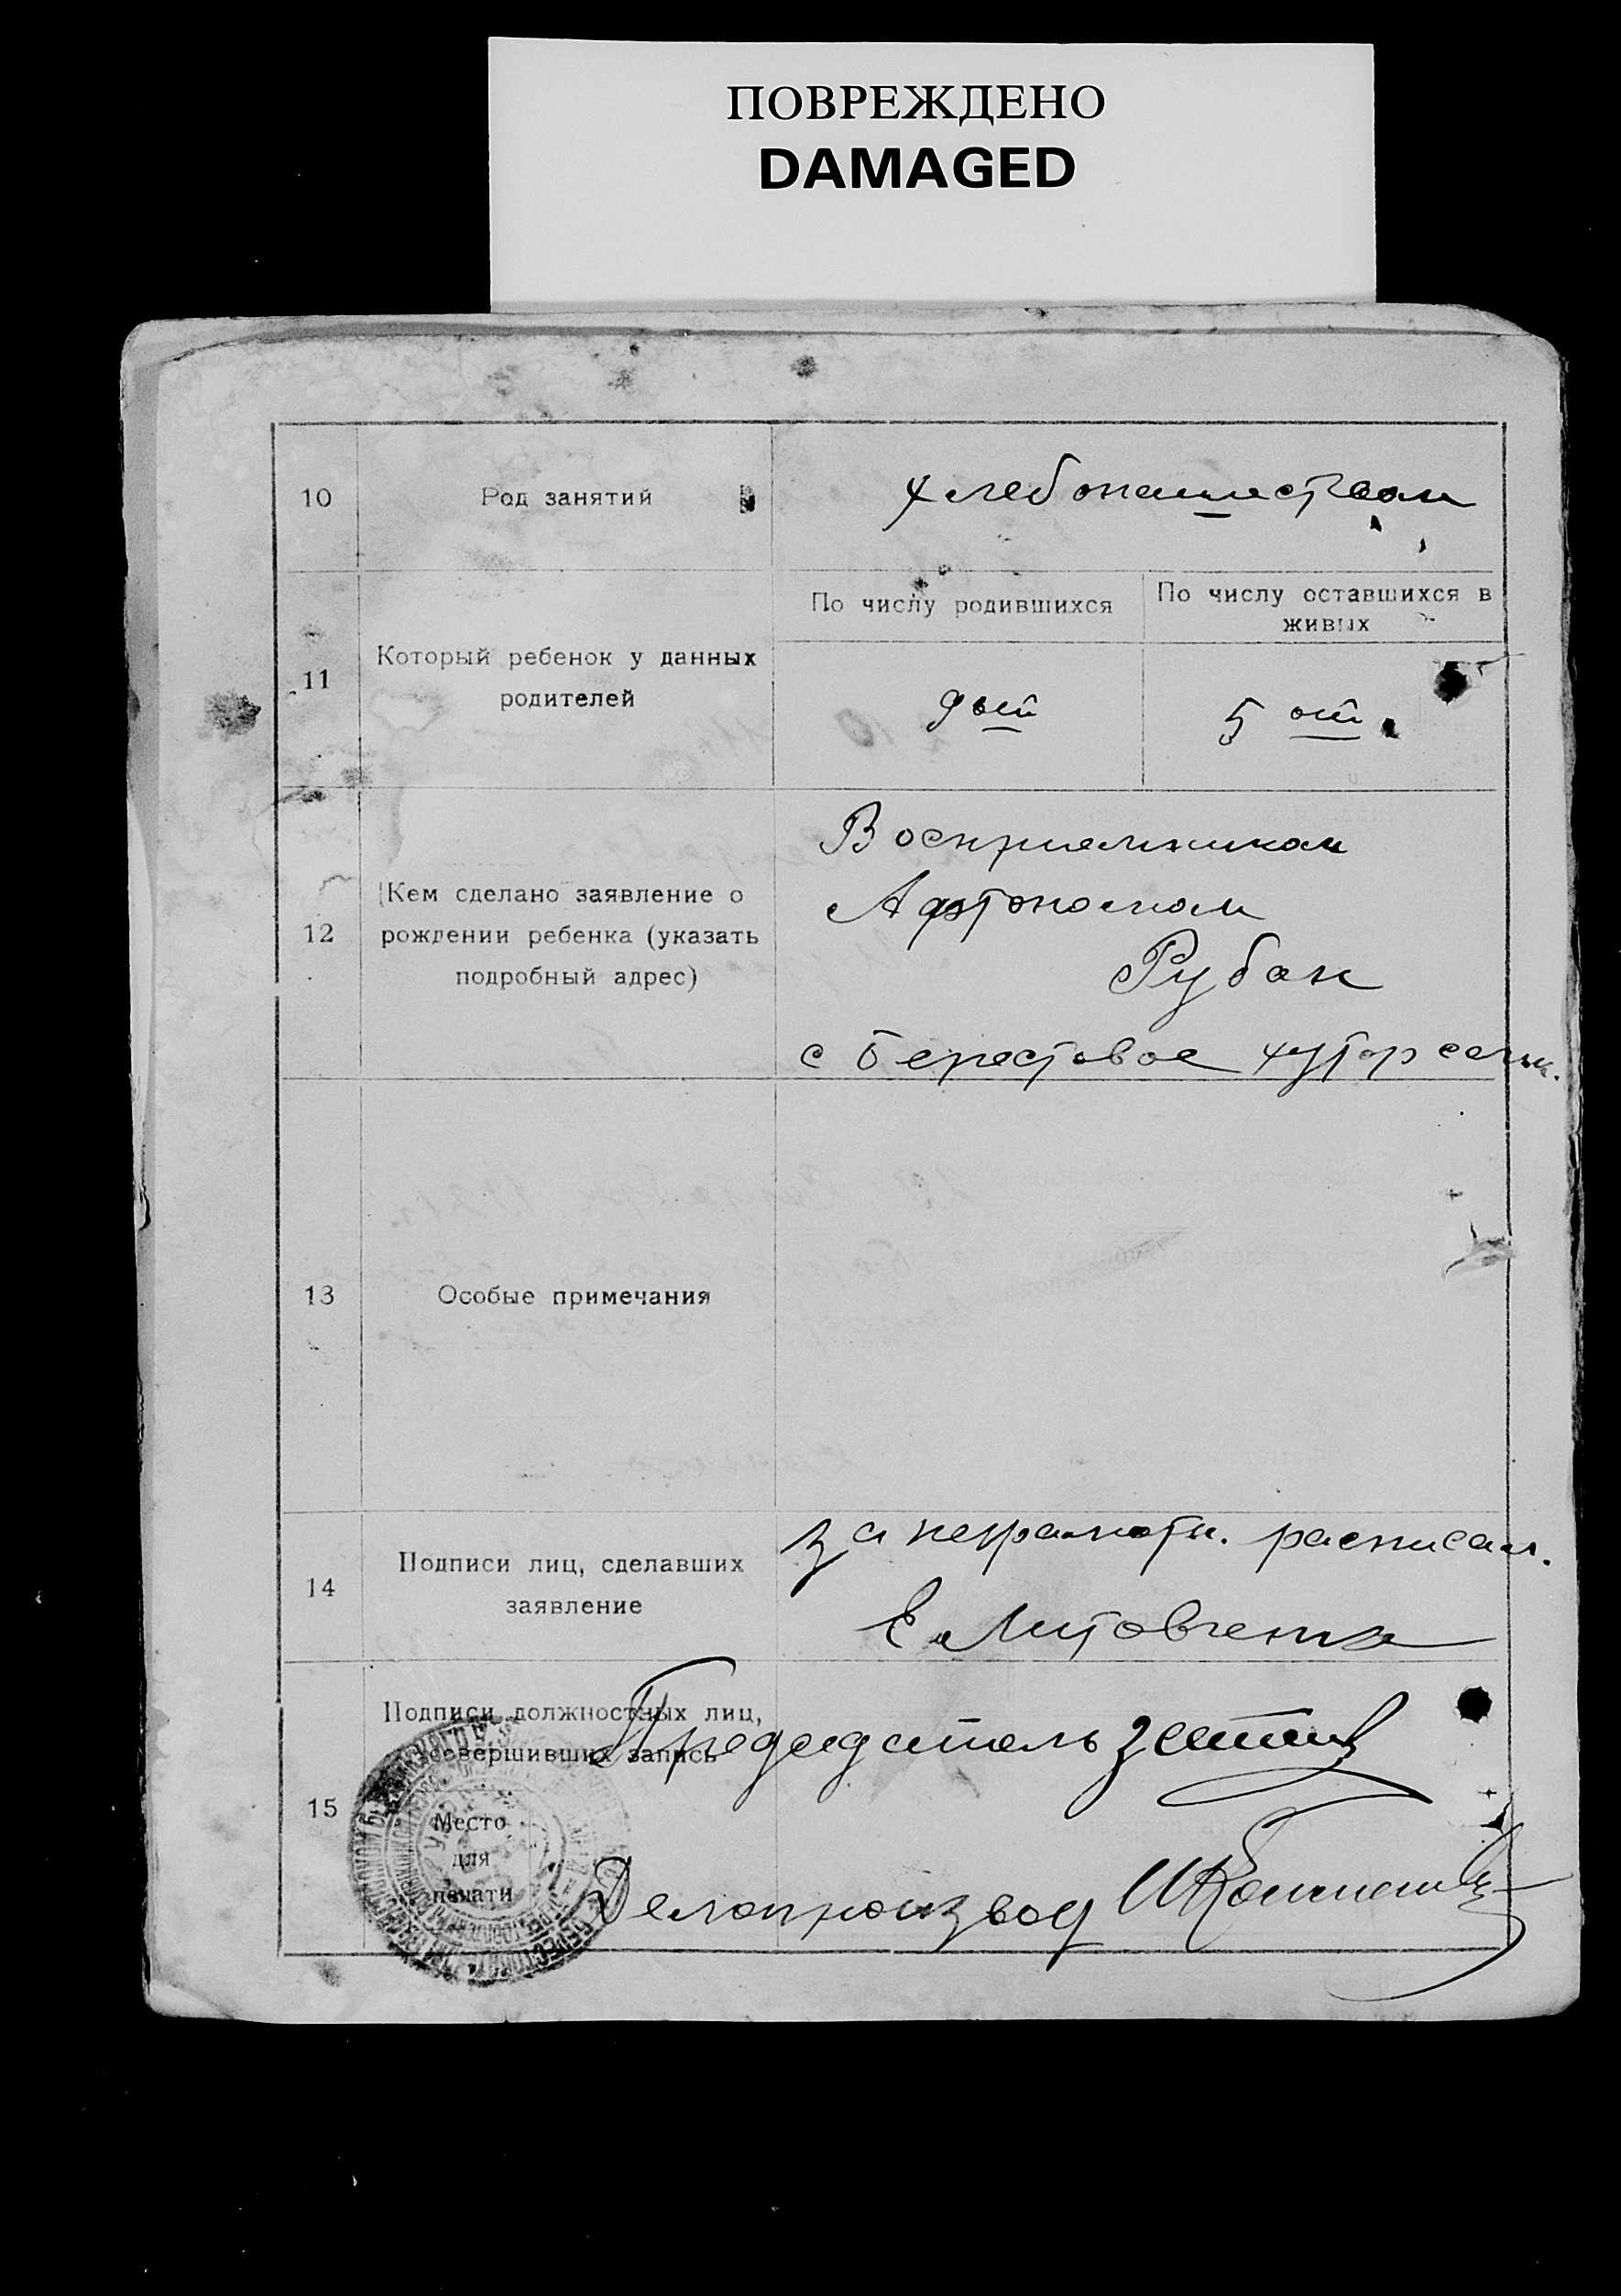 ПОВРЕЖДЕНО
DAMAGED
10
Род занятий
хлебопашеством
11
Который ребенок у данных
родителей
По числу родившихся
По числу оставшихся в
живых
9 ый
5 ый
12
Кем сделано заявление о
рождении ребенка (указать
подробный адрес)
Восприемником
Афтономом
Рубан
с Берестовое хутор
13
Особые примечания
14
Подписи лиц, сделавших
заявление
за неграмотн. расписал.
Е Литовченко
15
Подписи должностных лиц,
совершивших запись
Место
для
печати
Председатель
Делопроизвод